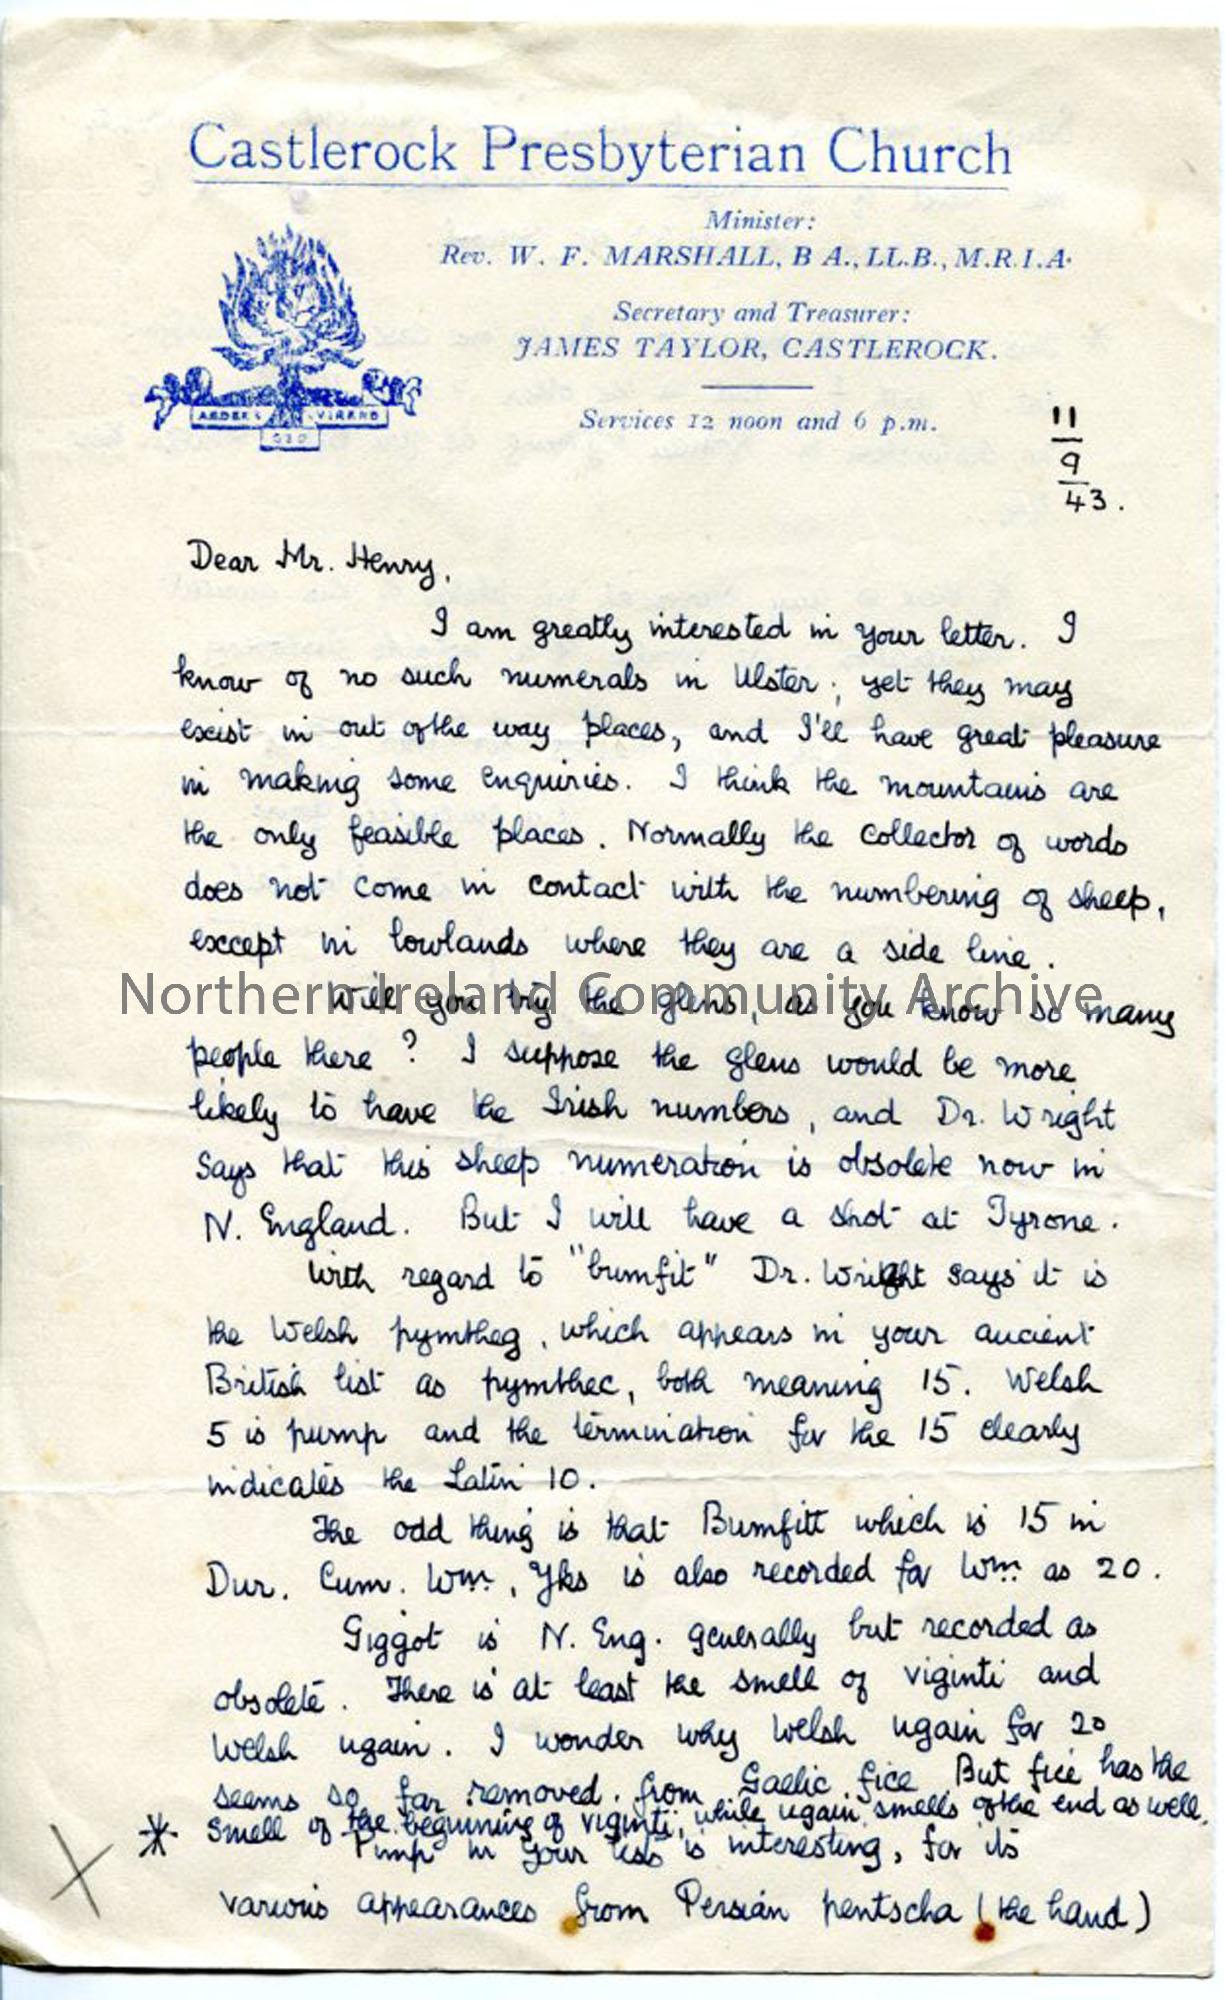 Castlerock Presbyterian Church
Minister:
Rev. W. F. MARSHALL, B A., LL.B., M.R.I.A.
Secretary and Treasurer:
JAMES TAYLOR, CASTLEROCK.
Services 12 noon and 6 p.m.
ARDENS VIRENS
11
9
43.
Dear Mr. Henry,
I am greatly interested in your letter. I
know of no such numerals in Ulster; yet they may
exist in out of the way places, and I'll have great pleasure
in making some enquiries. I think the mountains are
the only feasible places. Normally the collector of words
does not come in contact with the numbering of sheep,
except in lowlands where they are a side line.
Northern Ireland Community Archive
Will you try the glens, as you know so many
people there? I suppose the glens would be more
likely to have the Irish numbers, and Dr. Wright
says that this sheep numeration is obsolete now in
N. England. But I will have a shot at Tyrone.
With regard to "bumfit" Dr. Wright says it is
the Welsh pymtheg, which appears in your ancient
British list as pymthec, both meaning 15. Welsh
5 is pump and the termination for the 15 clearly
indicates the Latin 10.
The odd thing is that Bumfitt which is 15 in
Dur. Cum. Wm., Yks is also recorded for Wm. as 20.
Giggot is N. Eng. generally but recorded as
obsolete. There is at least the smell of viginti and
Welsh ugain. I wonder why Welsh ugain for 20
seems so far removed from Gaelic fice But fice has the
* smell of the beginning of viginti, while ugain smells of the end as well.
Pimp in your lists is interesting, for its
various appearances from Persian pentscha (the hand)